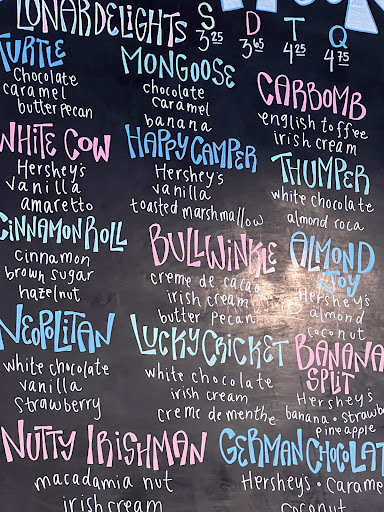 LUNAR DELIGHTS S D T Q
3.25 3.65 4.25 4.75
TURTLE
chocolate
caramel
butter pecan
MONGOOSE
chocolate
caramel
banana
CARBOMB
english toffee
irish cream
WHITE COW
Hershey's
vanilla
amaretto
HAPPY CAMPER
Hershey's
vanilla
toasted marshmallow
THUMPER
white chocolate
almond roca
CINNAMON ROLL
cinnamon
brown sugar
hazelnut
BULLWINKLE
creme de cacao
irish cream
butter pecan
ALMOND
JOY
Hershey's
almond
coconut
NEOPOLITAN
white chocolate
vanilla
strawberry
LUCKY CRICKET
white chocolate
irish cream
creme de menthe
BANANA
SPLIT
Hershey's
banana • strawb
pineapple
NUTTY IRISHMAN
macadamia nut
irish cream
GERMAN CHOCOLAT
Hersheys • Carame
coconut